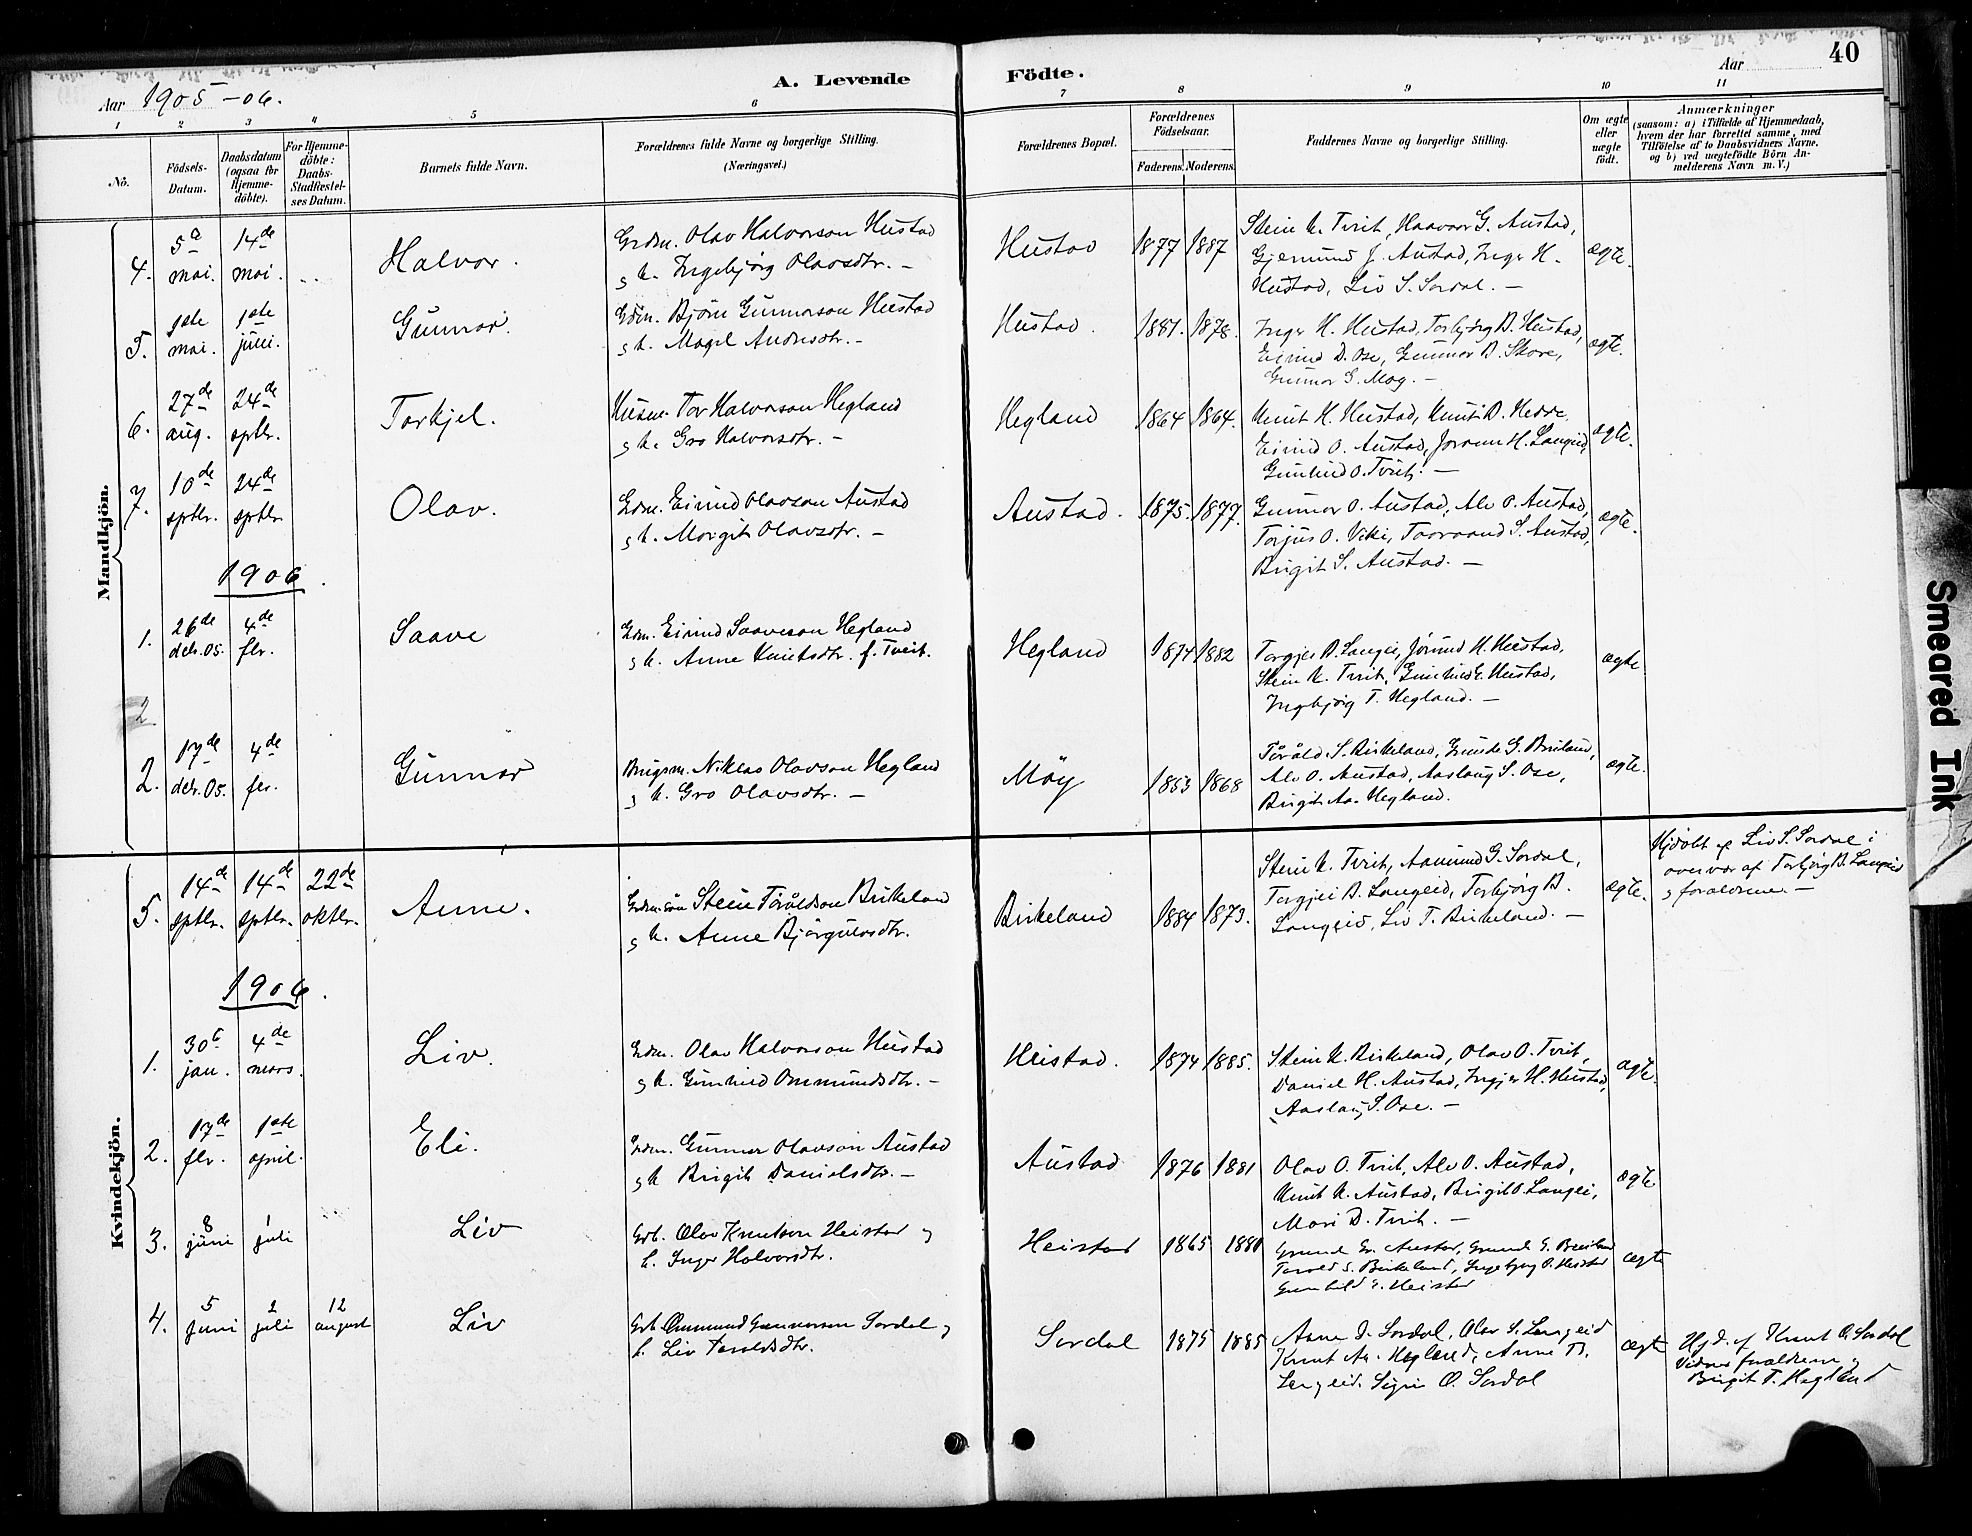 40
A. Levende Födte.
Aar 1905-06.
Aar
1 2 3 4 5 6 7 8 9 10 11
No.
Födsels-
Datum.
Daabsdatum
(ogsaa for
Hjemme-
döbte).
For Hjemme-
döbte:
Daabs-
Stadfæstel-
ses Datum.
Barnets fulde Navn.
Forældrenes fulde Navne og borgerlige Stilling.
(Næringsvei.)
Forældrenes Bopæl.
Forældrenes
Födselsaar.
Faderens. Moderens.
Faddernes Navne og borgerlige Stilling.
Om ægte
eller
uægte
født.
Anmærkninger
(saasom: a) i Tilfælde af Hjemmedaab,
hvem der har forrettet samme, med
Tilföielse af to Daabsvidners Navne,
og b) ved uægtefödte Börn An-
melderens Navn m. V.)
Mandkjön.
4. 5te mai. 14de mai. Halvor.
Grdm. Olav Halvorson Heistad
g h. Ingebjørg Olavsdtr. –
Heistad 1877 1887
Stein K. Tveit, Haavor G. Austad,
Gjermund J. Austad, Inger H.
Heistad, Liv S. Sordal. –
ægte.
5. 1ste mai. 1ste juli. Gunnar.
Grdm. Bjørn Gunnarson Heistad
g h. Margit Andersdtr. –
Heistad. 1881. 1878.
Inger H. Heistad, Torbjørg B. Heistad,
Eivind D. Ose, Gunnar B. Skore,
Gunnar G. Moy. –
ægte.
6. 27de aug. 24de septbr. Torkjel.
Husm. Tor Halvorson Hegland
g h. Gro Halvorsdtr. –
Hegland 1864 1864.
Knut H. Heistad, Knut B. Hedde,
Eivind O. Austad, Jorunn H. Langeid,
Gunhild O. Tveit. –
ægte.
7. 10de septbr. 24de septbr Olav.
Grdm. Eivind Olavson Austad
g h. Margit Olavsdtr. –
Austad. 1875. 1877.
Gunnar O. Austad, Alv O. Austad,
Torjus O. Viki, Taaraand S. Austad,
Birgit S. Austad. –
ægte.
1906.
1. 26de debr. 05. 4de fbr. Saave
Grdm. Eivind Saaveson Hegland
g h. Anne Knutsdtr. f. Tveit.
Hegland 1874 1882
Torgjei B. Langei, Jørund K. Heistad,
Stein K. Tveit, Gunhild E. Heistad,
Ingebjørg T. Hegland. –
ægte
2
2. 17de debr. 05. 4de fbr. Gunnar
Brugsm. Niklas Olavson Hegland
g h. Gro Olavsdtr. –
Möy 1853 1868
Tåråld S. Birkeland, Grunde G. Breiland,
Alv O. Austad, Aaslaug S. Ose,
Birgit Aa. Hegland.
ægte.
Kvindekjön.
5. 14de septbr. 14de septbr. 22de oktbr. Anne.
Grdm.søn Stein Tåråldson Birkeland
g h. Anne Bjørgulvsdtr.
Birkeland 1884 1873.
Stein K. Tveit, Aamund G. Sordal,
Torgjei B. Langeid, Torbjørg B.
Langeid, Liv T. Birkeland. –
ægte.
Hjdøbt af Liv S. Sordal i
overvær af Torbjørg B. Langeid
g forældrene. –
1906.
1. 30te jan. 4de mars. Liv.
Grdm. Olav Halvorson Heistad
g h. Gunhild Ommundsdtr. –
Heistad. 1874 1885.
Stein K. Birkeland, Olav O. Tveit,
Daniel H. Austad, Ingjer H. Heistad,
Aaslaug S. Ose. –
ægte.
2. 17de fbr. 1ste april. Eli.
Grdm. Gunnar Olavson Austad
g h Birgit Danielsdtr. –
Austad 1876 1881
Olav O. Tveit, Alv O. Austad,
Knut K. Austad, Birgit O. Langei,
Mari D. Tveit. –
ægte
3. 8 juni 1 juli Liv
Grb. Olav Knutson Heistad g
h. Inger Halvorsdtr.
Heistad 1865 1880
Grunde Austad, Grunde G. Breiland
Tarald S. Birkeland, Ingebjørg O. Heistad
Gunhild E. Heistad
ægte
4. 5 juni 2 juli 12 august Liv
Grb. Ommund Gunnarson Sordal g
h. Liv Taraldsdtr.
Sordal 1875 1885
Aane D. Sordal, Olav S. Langeid
Knut Aa. Hegland, Anne B.
Langeid. Signe O. Sordal
ægte
Hjd. af Knut O. Sordal
Vidner forældrene g
Birgit T. Hegland
Smeared Ink